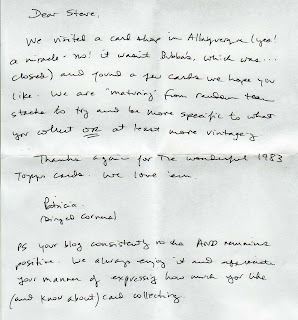 Dear Steve,
We visited a card shop in Albuquerque (yes!
a miracle - no! it wasn't Bubba's, which was...
closed) and found a few cards we hope you
like. We are "maturing" from random team
stacks to try and be more specific to what
you collect OR at least more vintagey
Thanks again for the wonderful 1983
Topps cards. We love 'em.
Patricia
(Dinged Corners)
PS Your blog consistently rocks AND remains
positive. We always enjoy it and appreciate
your manner of expressing how much you like
(and know about) card collecting.